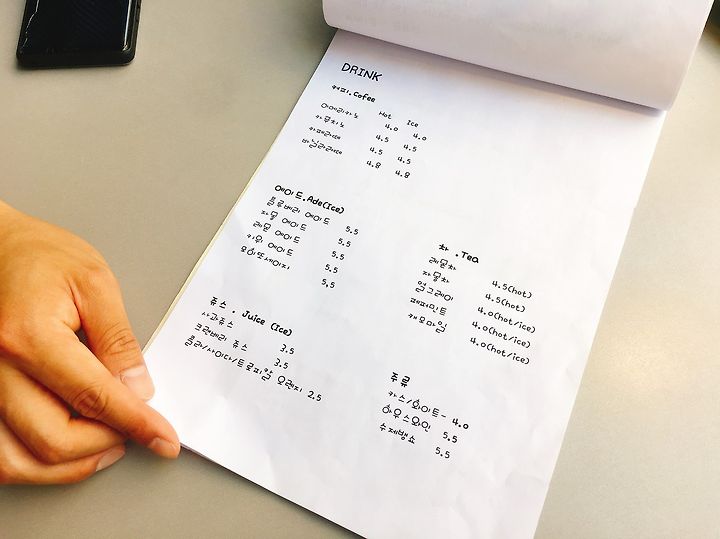 DRINK
커피.Cofee
Hot Ice
아메리카노 4.0 4.0
카푸치노 4.5 4.5
카페라떼 4.5 4.5
바닐라라떼 4.8 4.8
에이드.Ade(Ice)
블루베리 에이드 5.5
자몽 에이드 5.5
레몬 에이드 5.5
키위 에이드 5.5
5.5
쥬스. Juice (Ice)
사과쥬스 3.5
크랜베리 쥬스 3.5
콜라/사이다/트로피칼 오렌지 2.5
차 .Tea
레몬차 4.5(hot)
자몽차 4.5(hot)
얼그레이 4.0(hot/ice)
페퍼민트 4.0(hot/ice)
캐모마일 4.0(hot/ice)
주류
카스/화이트- 4.0
하우스와인 5.5
수제뱅쇼 5.5